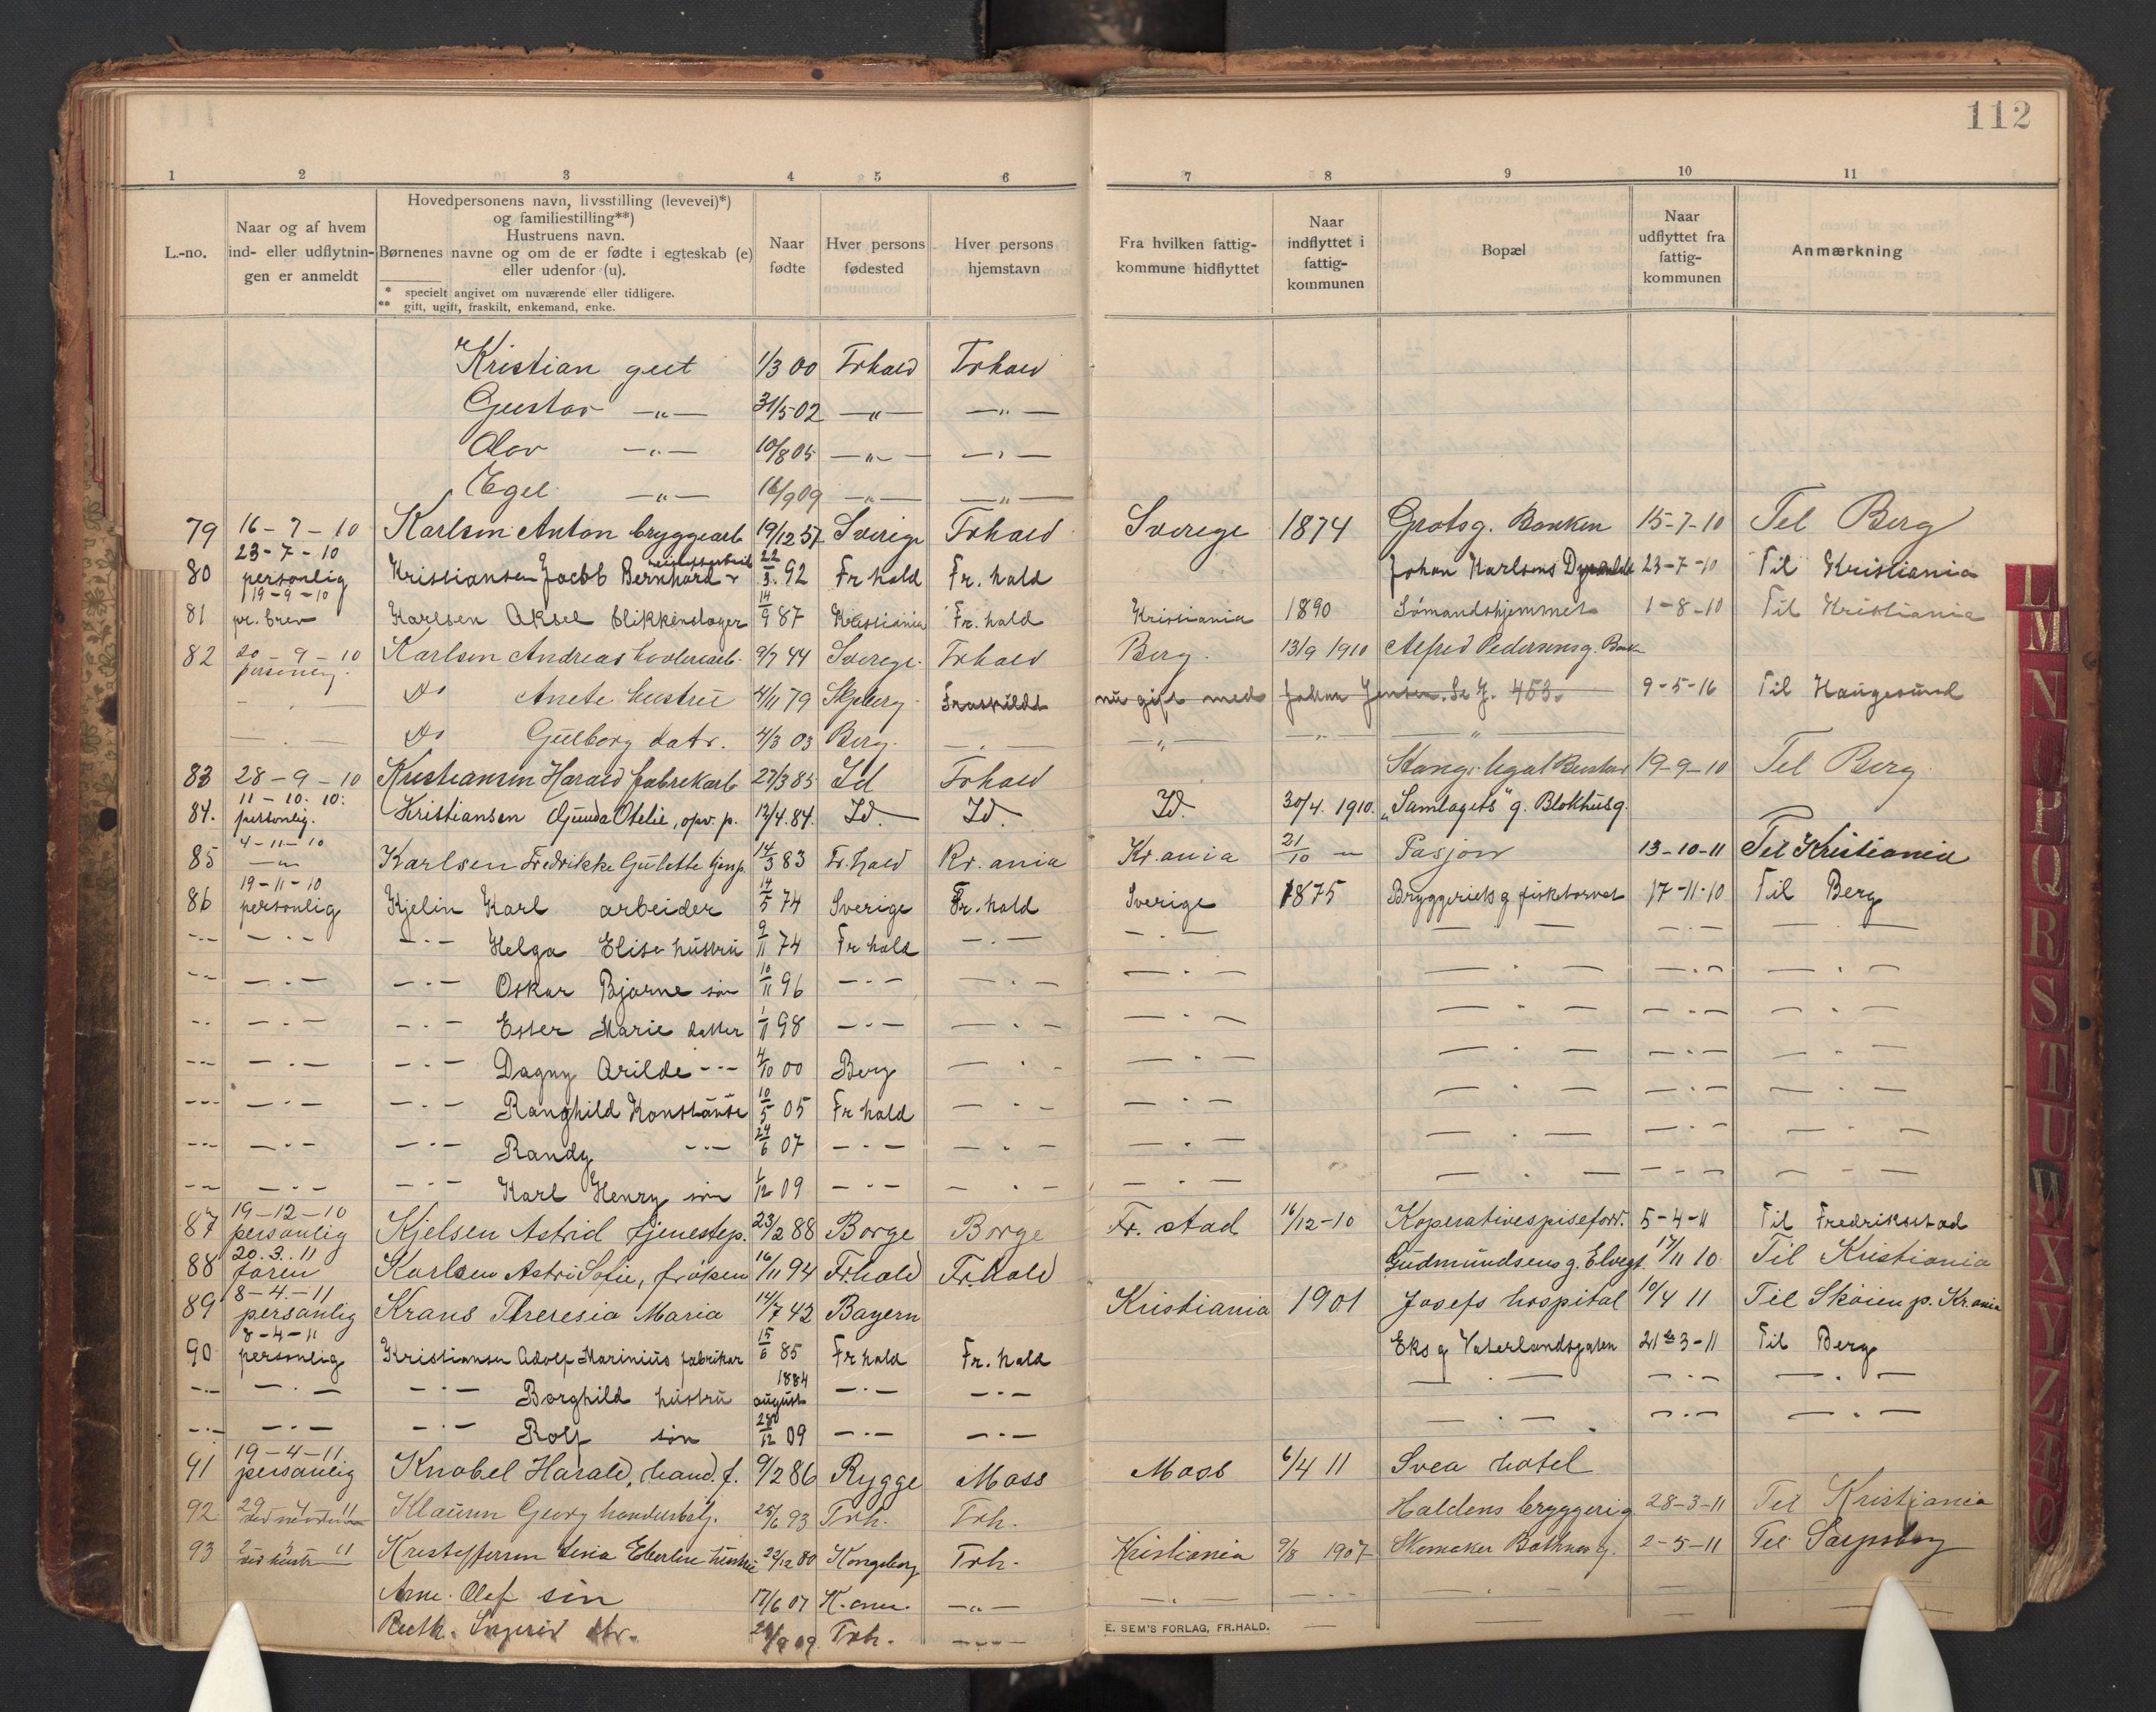 112
1 2 3 4 5 6 7 8 9 10 11
L.-no.
Naar og af hvem
ind- eller udflytnin-
gen er anmeldt
Hovedpersonens navn, livsstilling (levevei)*)
og familiestilling**)
Hustruens navn.
Børnenes navne og om de er fødte i egteskab (e)
eller udenfor (u).
* specielt angivet om nuværende eller tidligere.
** gift, ugift, fraskilt, enkemand, enke.
Naar
fødte
Hver persons
fødested
Hver persons
hjemstavn
Fra hvilken fattig-
kommune hidflyttet
Naar
indflyttet i
fattig-
kommunen
Bopæl
Naar
udflyttet fra
fattig-
kommunen
Anmærkning
Kristian gut 1/3 00 Frhald Frhald
Gustav -„- 31/5 02 -„- -„-
Olav -„- 10/8 05 -„- -„-
Egel -„- 16/9 09 -„- -„-
79 16-7-10 Karlsen Anton bryggearb 19/12 57 Sverige Frhald Sverege 1874 Grotsg. Banken 15-7-10 Tel Berg
80 23-7-10 personlig Kristiansen Jacob Bernhard 22/3 92 Fr hald Fr. hald Johan Karlsens 23-7-10 Til Kristiania
81 19-9-10 pr. brev Karlsen Aksel blikkenslager 14/9 87 Kristiania Fr. hald Kristiania 1890 Sømandshjemmet 1-8-10 Til Kristiania
82 20-9-10 personlig. Karlsen Andreas 9/7 44 Sverege Frhald Berg. 13/9 1910 Alfred Pedersensg.
Do Anete hustru 4/11 79 Skjeberg Fraskildt nu gift med Johan Jensen. Se J. 453. 9-5-16 Til Haugesund
Do Gulborg datr. 4/3 03 Berg. -„- -„- -„- -„-
83 28-9-10 Kristiansen Harald fabrikarb 27/3 85 Id Frhald Stangs legat 19-9-10 Tel Berg
84. 11-10-10. personlig. Kristiansen Gunda Otelie, opv. p. 12/4. 84. Id. Id. Id. 30/4. 1910. „Samlagets" g. Blokhusg.
85 4-11-10 -„- Karlsen Fredrikke Gulette tjenp. 14/3 83 Fr. hald Kr. ania Kr. ania 21/10 - Pasjon 13-10-11 Tel Kristiania
86 19-11-10 personlig Kjelin Karl arbeider 14/5 74 Sverige Fr. hald Sverige 1875 Bryggeriets g fisktorvet 17-11-10 Til Berg
-.- Helga Elise hustru 9/11 74 Fr hald -.-
-.- Oskar Bjarne søn 10/11 96 -.- -.-
-.- Ester Marie datter 1/11 98 -.- -.-
-.- Dagny Arilde -.- 4/10 00 Berg -.-
-.- Ranghild Konstanse 10/5 05 Fr hald -.-
-.- Randy -.- 24/6 07 -.- -.-
-.- Karl Henry søn 1/12 09 -.- -.-
87 19-12-10 personlig Kjelsen Astrid tjenestep. 23/2 88 Borge Borge Fr. stad 16/12-10 Koperativespiseforr. 5-4-11 Til Fredriksstad
88 20.3.11 faren Karlsen Astri Sofie, frøken 16/11 94 Fr.hald Fr.hald Gudmundsens g. Elvegt. 17/11 10 Til Kristiania
89 8-4-11 personlig Krans Theresia Maria 14/7 42 Bayern Kristiania 1901 Josefs hospital 10/4 11 Til Skøien p. Kr.ania
90 8-4-11 personlig Kristiansen Adolf Marinius fabrikar 15/6 85 Fr hald Fr. hald Eks g Vaterlandsgaten 21-3-11 Til Berg
-.- Borghild hustru 1884 august -.- -.-
-.- Rolf søn 28/12 09 -.- -.-
91 19-4-11 personlig Knobel Harald, hand. f. 9/2 86 Rygge Moss Moss 6/4 11 Svea hotel
92 29-4-11 Klausen Georg handelsbetj. 25/6 93 Frh. Frh. Haldens bryggerig 28-3-11 Tel Kristiania
93 2-5-11 Kristoffersen Lena Eberline hustru 22/12 80 Kongsberg Frh. Kristiania 9/8 1907 Skomaker Bothnes g. 2-5-11 Tel Sarpsborg
Arne Olaf søn 17/6 07 K.ania -„-
Ruth Ingrid dtr. 24/9 09 Frh. -„-
E. SEM'S FORLAG, FR.HALD.
L
M
N
P
Q
R
S
T
U
W
X
Y
Z
Æ
Ø